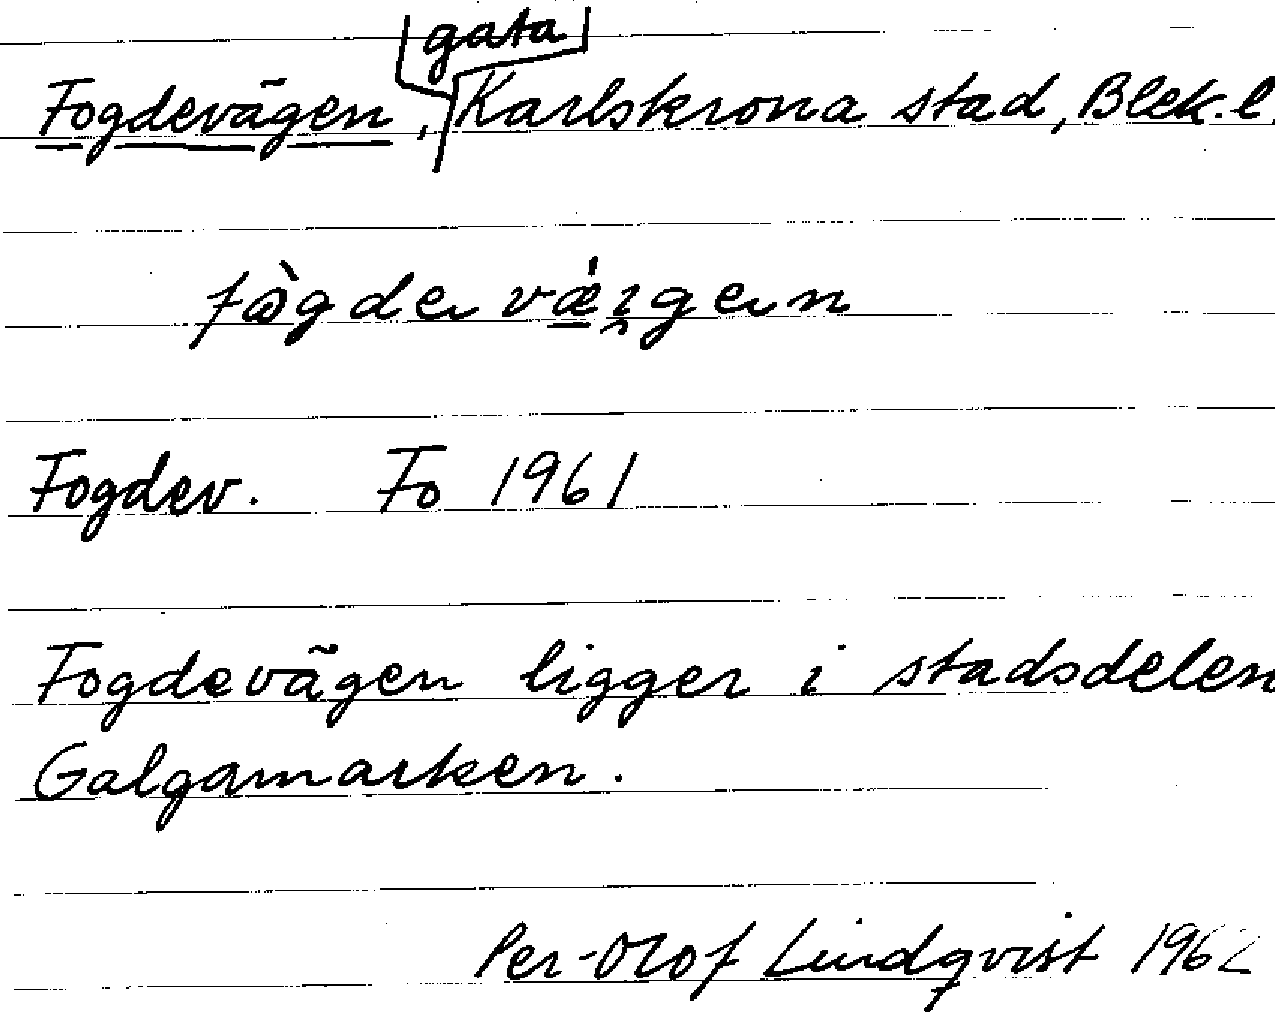 Fogdevägen, gata Karlskrona stad, Blek. l.
Fogdev. Fo 1961
Fogdevägen ligger i stadsdelen
Galgamarken.
Per-Olof Lindqvist 1962